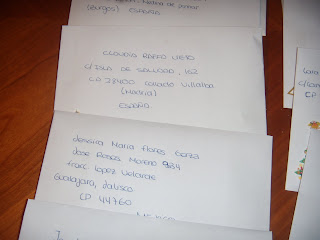 (Burgos) ESPAÑA
CLAUDIA NIETO
C/ISLA DE , 162
28400 Collado Villalba
(Madrid)
ESPAÑA.
Jessica Maria Flores Garza
Jose Rosas Moreno 984
Fracc. Lopez Velarde
Guadalajara, Jalisco
CP 44760
CP